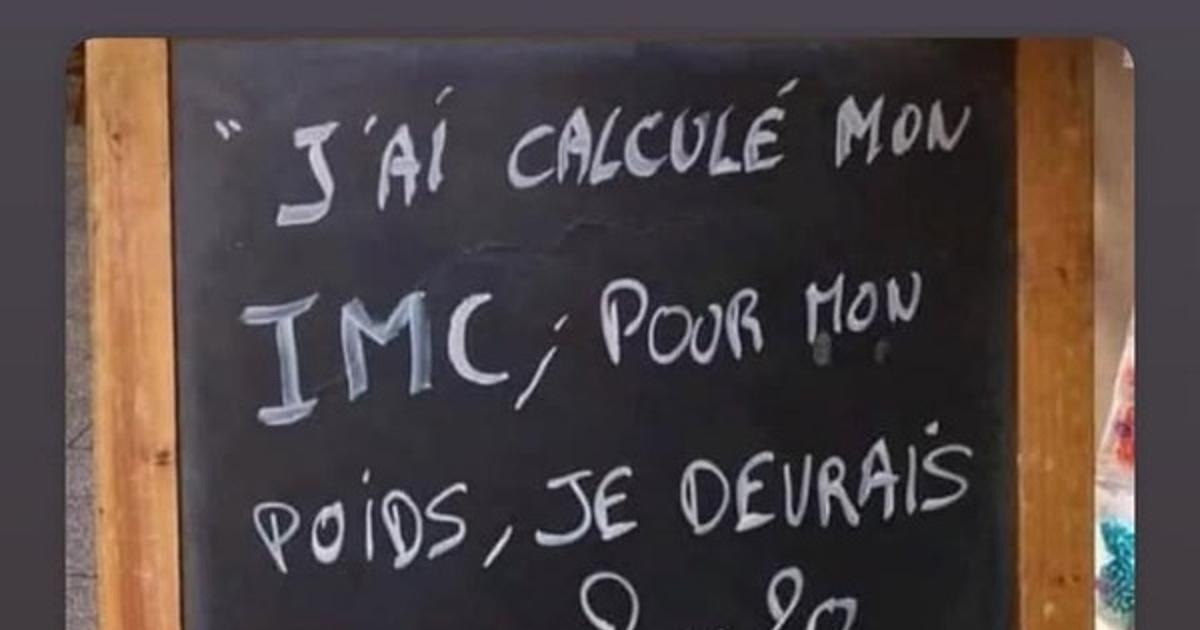 “ J'AI CALCULÉ MON
IMC, POUR MON
POIDS, JE DEVRAIS